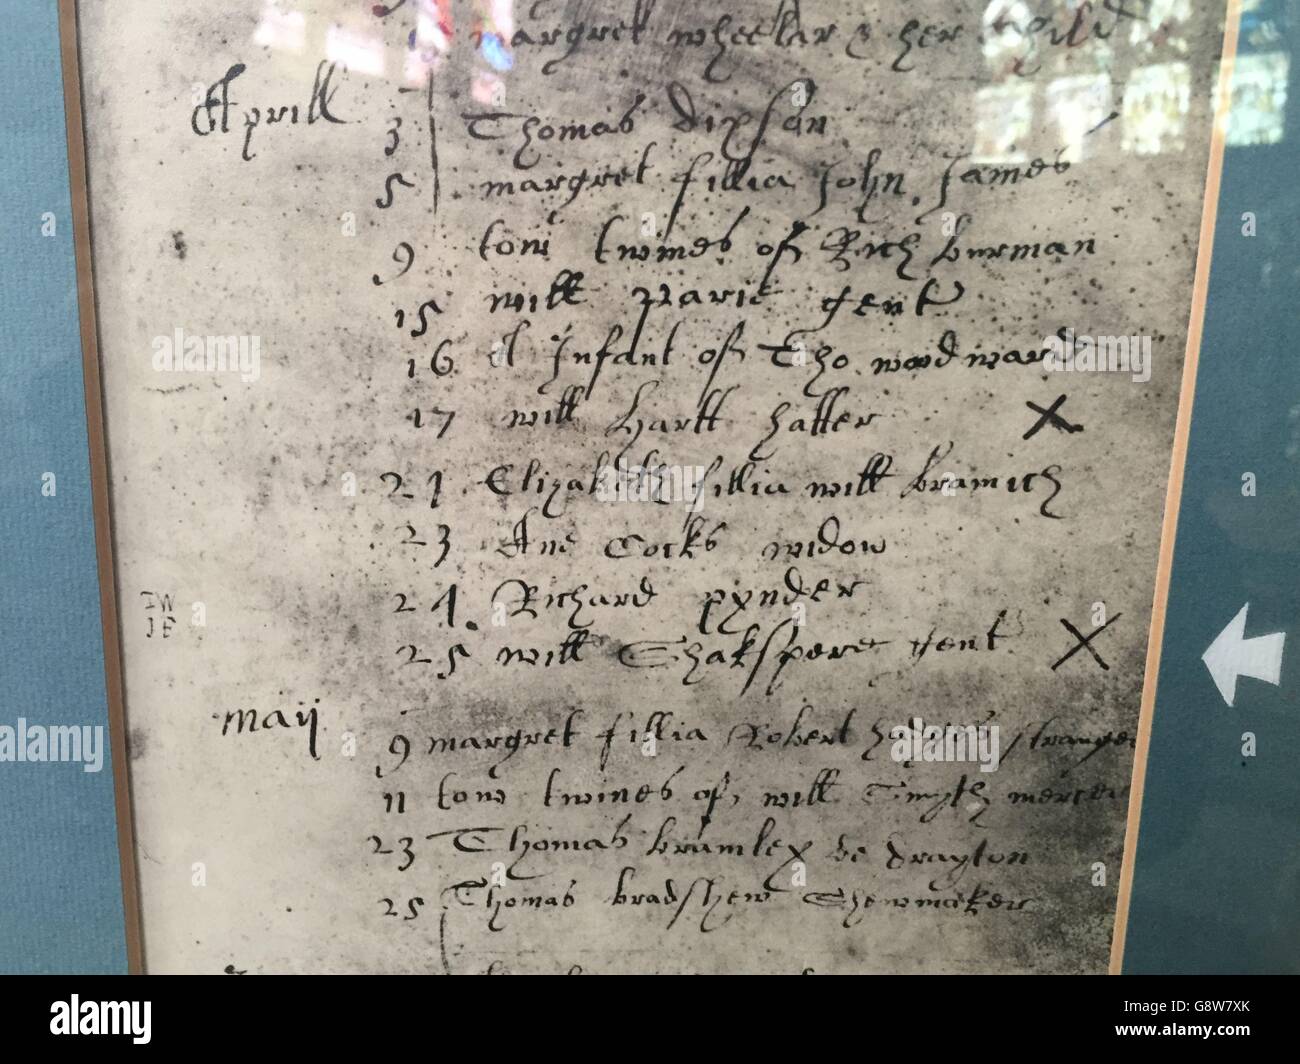 margret wheelar & her Child
Aprill 3 Thomas dixson
5 margret fillia John James
9 tow twines of Rich burman
15 will gent
16 A Infant of Tho woodward
17 will hartt hatter X
21 Elizabeth fillia will bramich
23 Ane Cocks widow
24 Richard pynder
25 will Shakspere gent X
IW
maij 9 margret fillia Robert stranger
11 tow twines of will Smyth mercer
23 Thomas brumley de drayton
25 Thomas bradshew Shewmaker
alamy
alamy
alamy
Image ID: G8W7XK
www.alamy.com